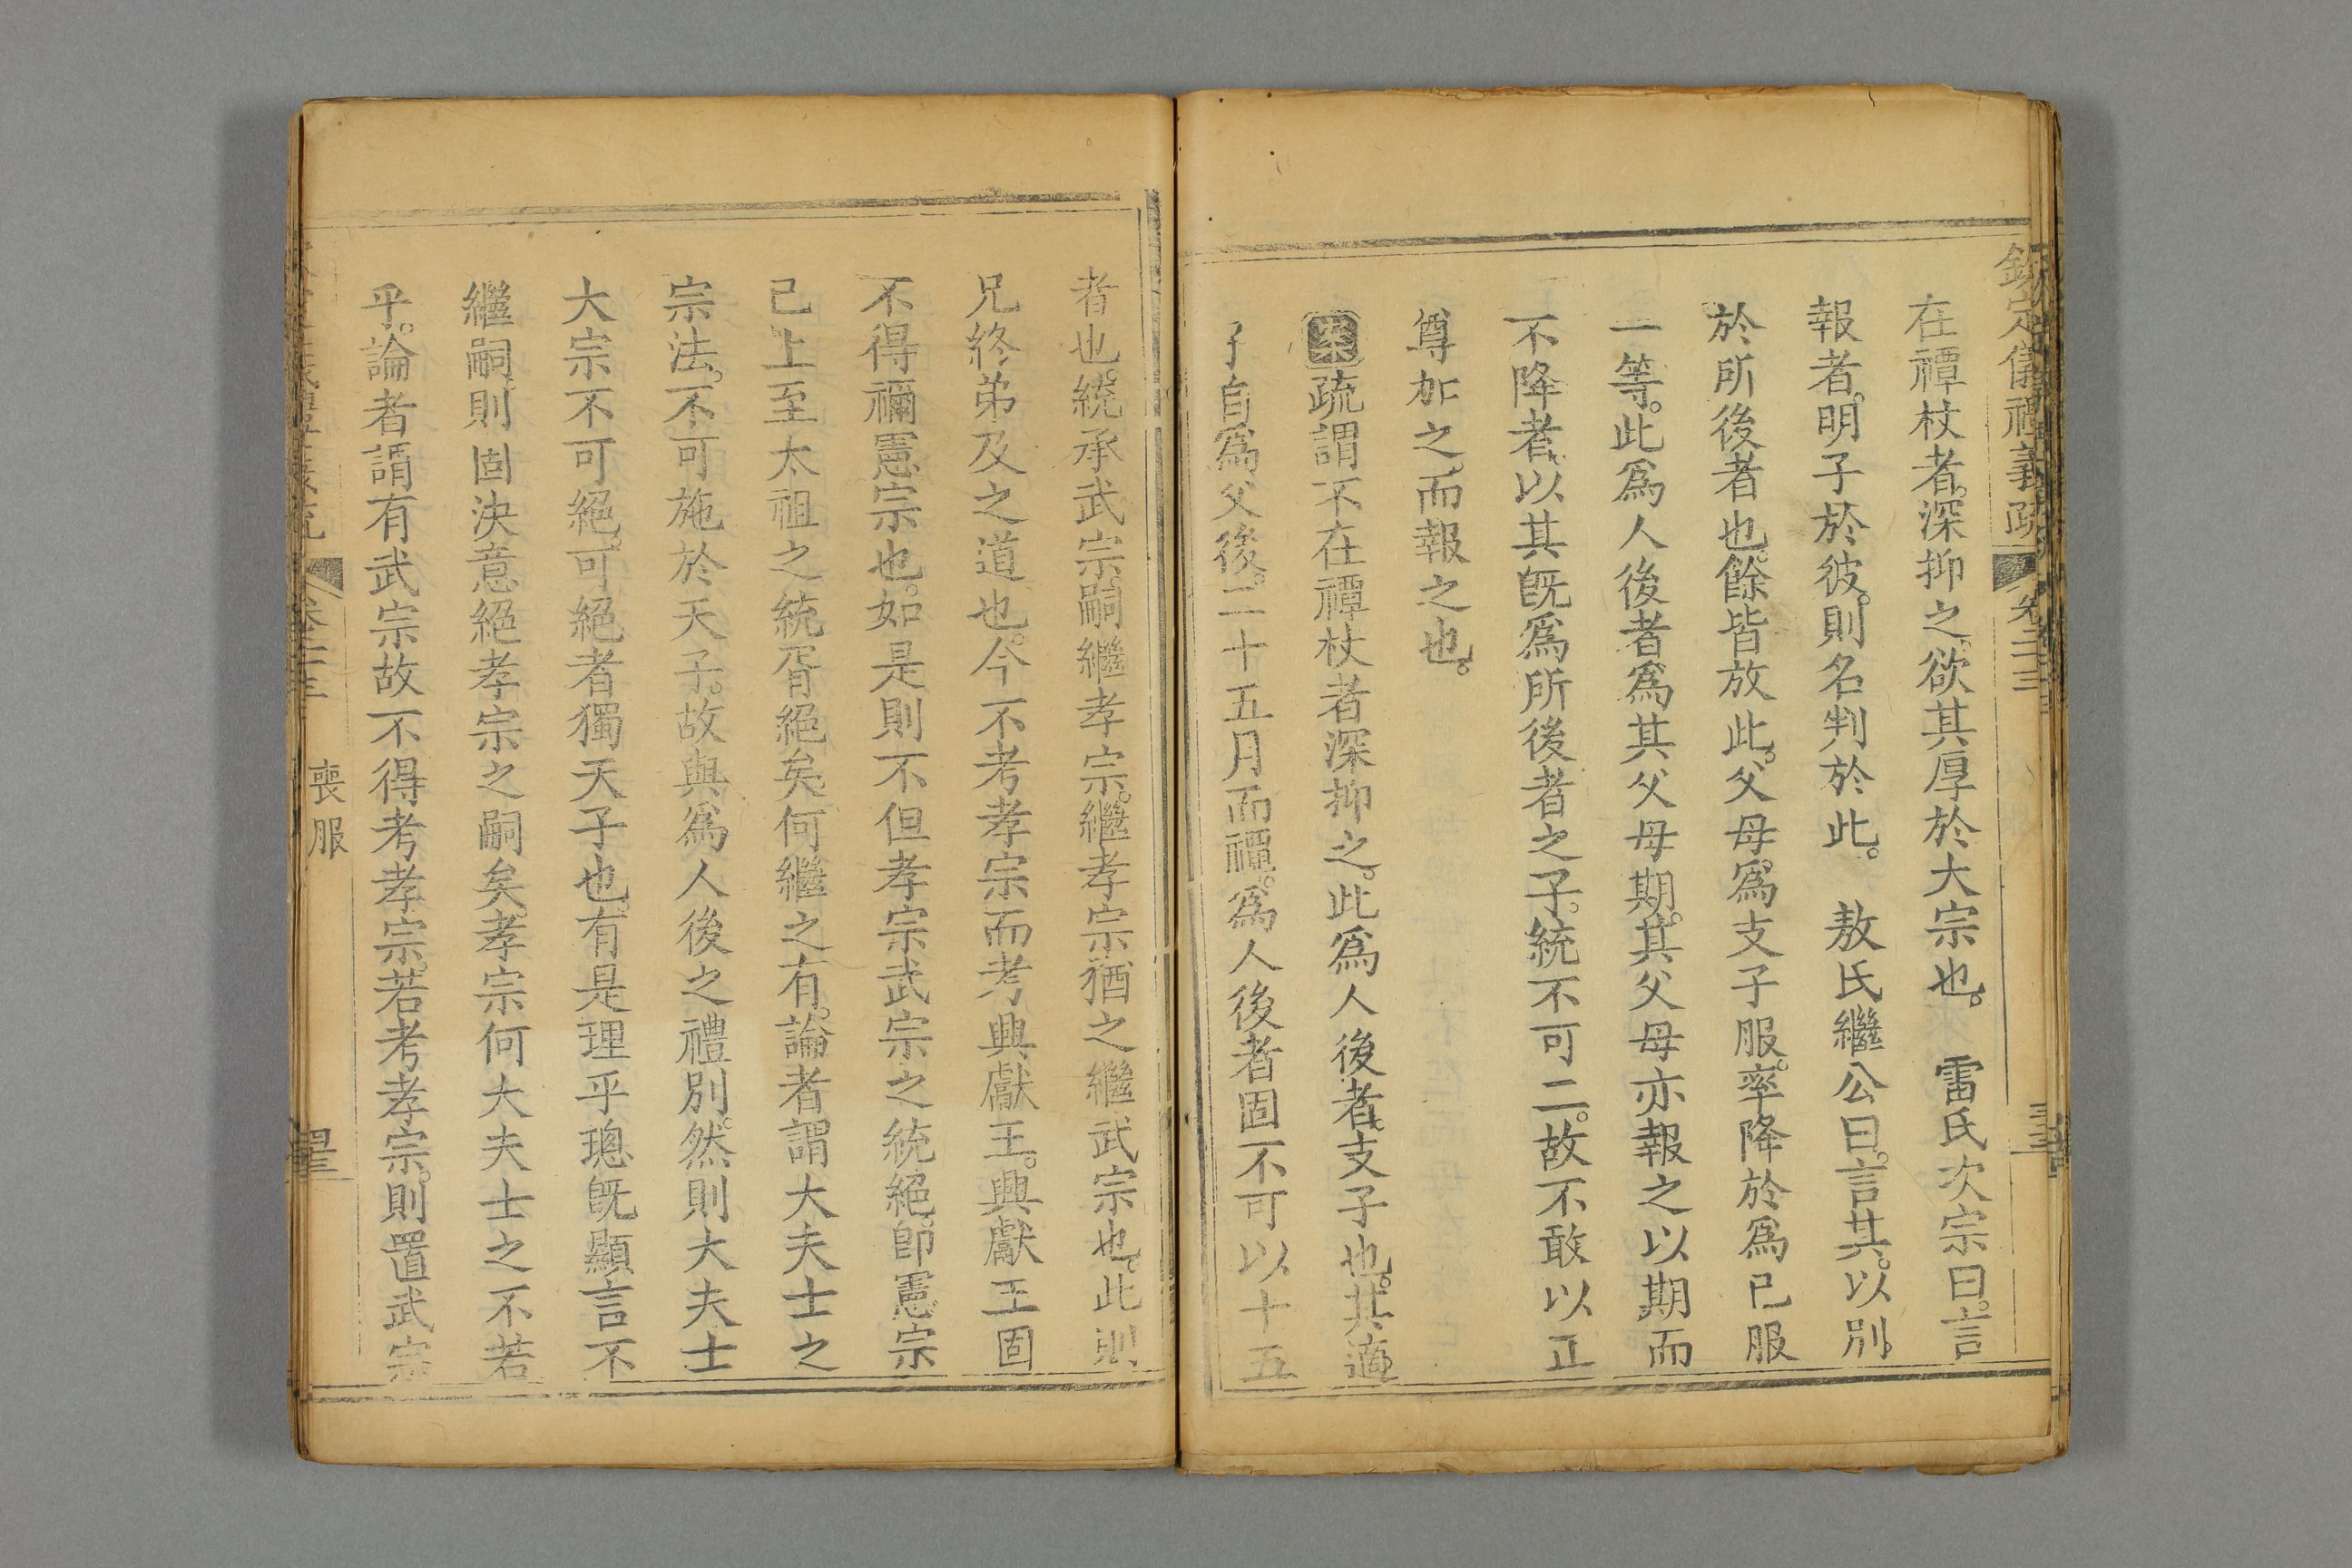 欽定儀禮義疏 卷二十三
在禫杖者。深抑之。欲其厚於大宗也。 雷氏次宗曰。言
報者。明子於彼。則名判於此。 敖氏繼公曰。言其。以別
於所後者也。餘皆放此。父母爲支子服。率降於爲已服
一等。此爲人後者爲其父母期。其父母亦報之以期而
不降者。以其旣爲所後者之子。統不可二。故不敢以正
尊加之。而報之也。
案疏謂不在禫杖者深抑之。此爲人後者。支子也。其適
子自爲父後。二十五月而禫。爲人後者固不可以十五
者也。統承武宗。嗣繼孝宗。繼孝宗猶之繼武宗也。此則
兄終弟及之道也。今不考孝宗而考興獻王。興獻王固
不得禰憲宗也。如是則不但孝宗武宗之統絕。卽憲宗
已上至太祖之統胥絕矣。何繼之有。論者謂大夫士之
宗法。不可施於天子。故與爲人後之禮別。然則大夫士
大宗不可絕。可絕者獨天子也。有是理乎。璁旣顯言不
繼嗣。則固決意絕孝宗之嗣矣。孝宗何大夫士之不若
乎。論者謂有武宗故不得考孝宗。若考孝宗。則置武宗
卷二十三 喪服